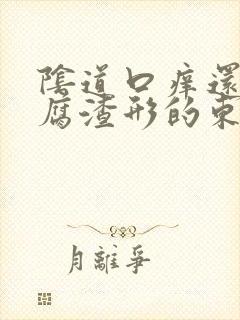 陰道口痒還
腐渣形的東
月離爭